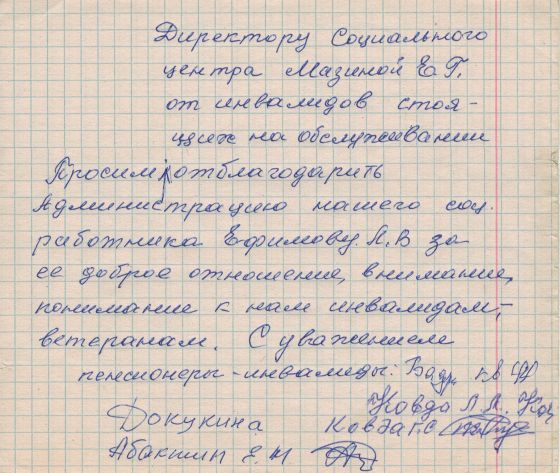 Директору Социального
центра Мазиной Е.Г.
от инвалидов стоя-
щих на обслуживании
Просим отблагодарить
Администрацию нашего соц.
работника Ефимову Л.В за
ее доброе отношение, внимание,
понимание к нам инвалидам,-
ветеранам. С уважением
пенсионеры-инвалиды:
Ковда Л.А.
Докукина Ковда Г.С
Абакшин Е.И